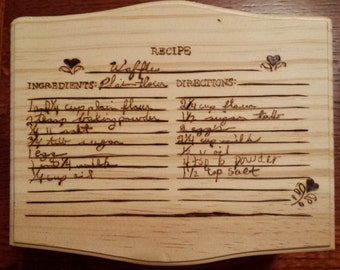 RECIPE
Waffles
INGREDIENTS: Plain flour
DIRECTIONS:
1 and 1/4 cup plain flour
2 teasp baking powder
1/4 " salt
3/4 tsp sugar
1 egg
1 and 1/4 milk
1/4 cup oil
2 1/4 cup flour
1 1/2 sugar
2 eggs
2 1/4 cup milk
1/2 " oil
4 tsp b powder
1 1/2 tsp salt